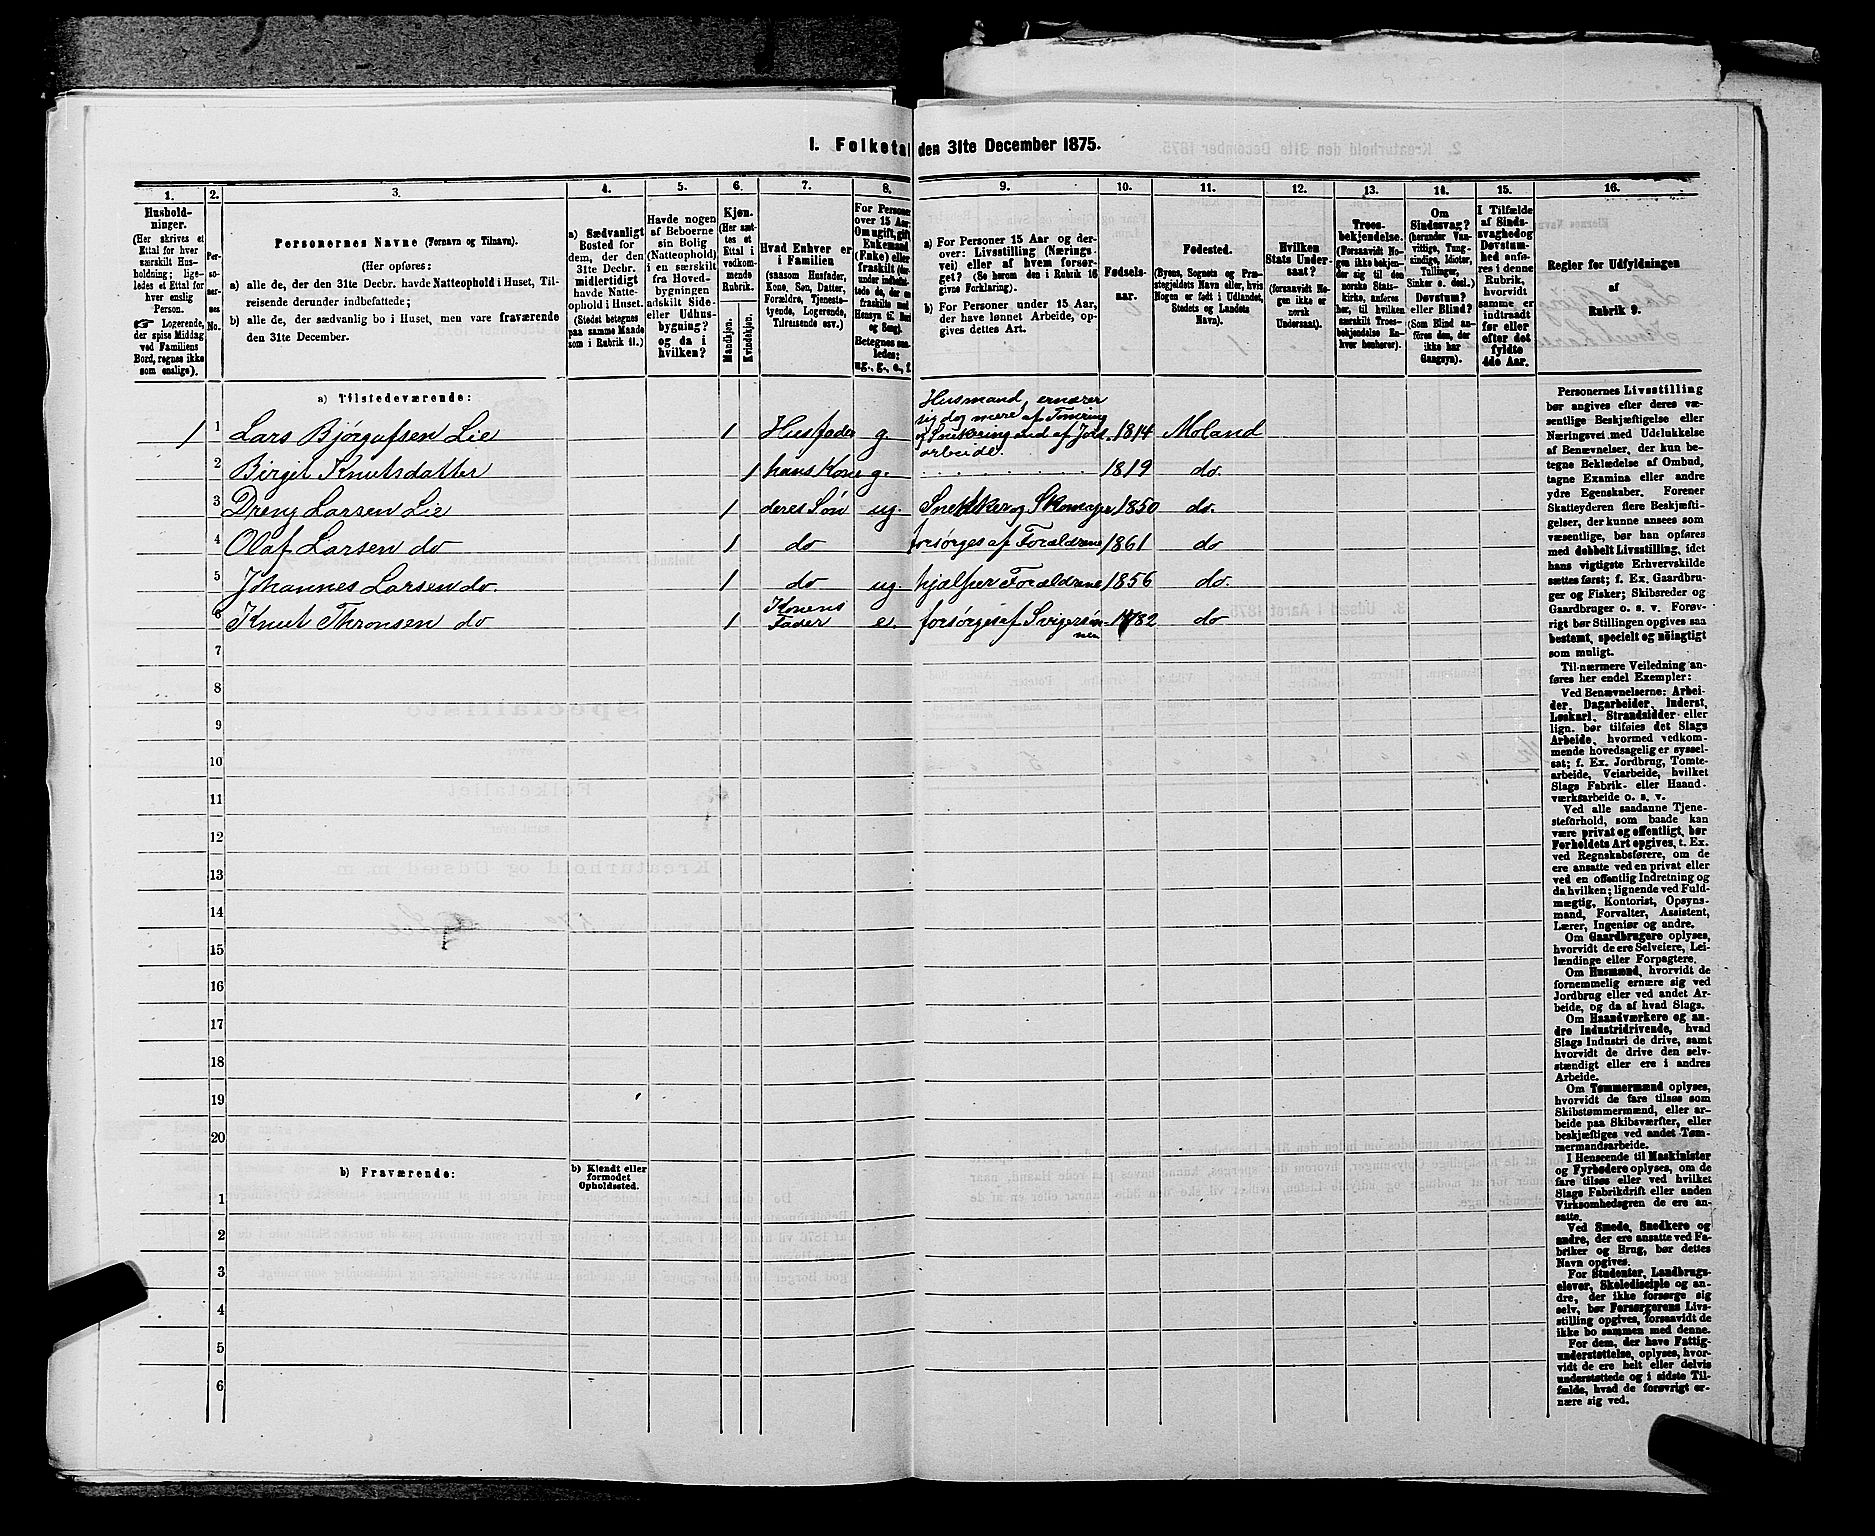 1. Folketal den 31te December 1875.
1.
Hushold-
ninger.
(Her skrives et
Ettal for hver
særskilt Hus-
holdning; lige-
ledes et Ettal for
hver enslig
Person.
☞ Logerende,
der spise Middag
ved Familiens
Bord, regnes ikke
som enslige).
2.
Per-
so-
ner-
nes
No.
3.
Personernes Navne (Fornavn og Tilnavn).
(Her opføres:
a) alle de, der den 31te Decbr. havde Natteophold i Huset, Til-
reisende derunder indbefattede;
b) alle de, der sædvanlig bo i Huset, men vare fraværende
den 31te December.
4.
a) Sædvanligt
Bosted for
dem, der den
31te Decbr.
midlertidigt
havde Natte-
ophold i Huset.
(Stedet betegnes
paa samme Maade
som i Rubrik 11.)
5.
Havde nogen
af Beboerne
sin Bolig
(Natteophold)
i en særskilt
fra Hoved-
bygningen
adskilt Side-
eller Udhus-
bygning?
og da i
hvilken?
6.
Kjøn.
(Her sæt-
tes et
Ettal i
vedkom-
mende
Rubrik.
Mandkjøn.
Kvindekjøn.
7.
Hvad Enhver er
i Familien
(saasom Husfader,
Kone, Søn, Datter,
Forældre, Tjeneste-
tyende, Logerende,
Tilreisende osv.)
8.
For Personer
over 15 Aar
Om ugift, gift
Enkemand
(Enke) eller
fraskilt
Betegnes saa-
ledes:
ug., g., e., f.
9.
a) For Personer 15 Aar og der-
over: Livsstilling (Nærings-
vei) eller af hvem forsør-
get? (Se herom den i Rubrik 16
givne Forklaring).
b) For Personer under 15 Aar,
der have lønnet Arbeide, op-
gives dettes Art.
10.
Fødsels-
aar.
11.
Fødested.
(Byens, Sognets og Præ-
stegjeldets Navn eller, hvis
Nogen er født i Udlandet,
Stedets og Landets
Navn).
12.
Hvilken
Stats Under-
saat?
(forsaavidt No-
gen ikke er
norsk
Undersaat).
13.
Troes-
bekjendelse.
(Forsaavidt No-
gen ikke bekjen-
der sig til den
norske Stats-
kirke, anføres
her, til hvilken
særskilt Troes-
bekjendelse En-
hver henhører).
14.
Om
Sindssvag?
(herunder Van-
vittige, Tung-
sindige, Idioter,
Tullinger,
Sinker o. desl.)
Døvstum?
eller Blind?
(Som Blind an-
føres den, der
ikke har
Gangsyn).
15.
I Tilfælde
af Sinds-
svaghed og
Døvstum-
hed anfø-
res i denne
Rubrik,
hvorvidt
samme er
indtraadt
før eller
efter det
fyldte
4de Aar.
16.
Regler for Udfyldningen
af
Rubrik 9.
a) Tilstedeværende:
1 1 Lars Bjørgufsen Lie 1 Husfader g. Husmand, ernærer
sig dog mere af Tømring
og Snekkring end af Jord-
arbeide. 1814 Moland
2 Birgit Knutsdatter 1 hans Kone g. 1819 do.
3 Dreng Larsen Lie 1 deres Søn ug. Snekker og Skomager 1850 do.
4 Olaf Larsen do 1 do forsørges af Forældrene 1861 do
5 Johannes Larsen do. 1 do ug. hjælper Forældrene 1856 do.
6 Knut Thronsen do 1 Konens
Fader e. forsørges af Svigersøn-
nen 1782 do
7
8
9
10
11
12
13
14
15
16
17
18
19
20
b) Fraværende:
b) Kjendt eller
formodet
Opholdssted.
1
2
3
4
5
6
Personernes Livsstilling
bør angives efter deres væ-
sentlige Beskjæftigelse eller
Næringsvei med Udelukkelse
af Benævnelser, der kun be-
tegne Beklædelse af Ombud,
tagne Examina eller andre
ydre Egenskaber. Forener
Skatteyderen flere Beskjæfti-
gelser, der kunne ansees som
væsentlige, bør han opføres
med dobbelt Livsstilling, idet
hans vigtigste Erhvervskilde
sættes først; f. Ex. Gaardbru-
ger og Fisker; Skibsreder og
Gaardbruger o. s. v. Forøv-
rigt bør Stillingen opgives saa
bestemt, specielt og nøiagtigt
som muligt.
Til nærmere Veiledning an-
føres her endel Exempler:
Ved Benævnelserne: Arbei-
der, Dagarbeider, Inderst,
Løskarl, Strandsidder eller
lign. bør tilføies det Slags
Arbeide, hvormed vedkom-
mende hovedsagelig er syssel-
sat; f. Ex. Jordbrug, Tomte-
arbeide, Veiarbeide, hvilket
Slags Fabrik- eller Haand-
værksarbeide o. s. v.
Ved alle saadanne Tjene-
steforhold, som baade kan
være privat og offentligt, bør
Forholdets Art opgives, t. Ex.
ved Regnskabsførere, om de
ere ansatte ved en privat eller
ved en offentlig Indretning og
da hvilken; lignende ved Fuld-
mægtig, Kontorist, Opsyns-
mand, Forvalter, Assistent,
Lærer, Ingeniør og andre.
Om Gaardbrugere oplyses,
hvorvidt de ere Selveiere, Lei-
lændinge eller Forpagtere.
Om Husmænd, hvorvidt de
fornemmelig ernære sig ved
Jordbrug eller ved andet Ar-
beide, og da af hvad Slags.
Om Haandværkere og an-
dre Industridrivende, hvad
Slags Industri de drive, samt
hvorvidt de drive den selv-
stændigt eller ere i andres
Arbeide.
Om Tømmermænd oplyses,
hvorvidt de fare tilsøs som
Skibstømmermænd, eller ar-
beide paa Skibsværfter, eller
beskjæftiges ved andet Tøm-
mermandsarbeide.
I Henseende til Maskinister
og Fyrbødere oplyses, om de
fare tilsøs eller ved hvilket
Slags Fabrikdrift eller anden
Virksomhedsgren de ere an-
satte.
Ved Smede, Snedkere og
andre, der ere ansatte ved Fa-
briker og Brug, bør dettes
Navn opgives.
For Studenter, Landbrugs-
elever, Skoledisciple og an-
dre, der ikke forsørge sig
selv, bør Forsørgerens Livs-
stilling opgives, forsaavidt de
ikke bo sammen med denne.
For dem, der have Fattig-
understøttelse, oplyses, hvor-
vidt de ere helt eller delvis
understøttede og i sidste Til-
fælde, hvad de forøvrigt er-
nære sig ved.